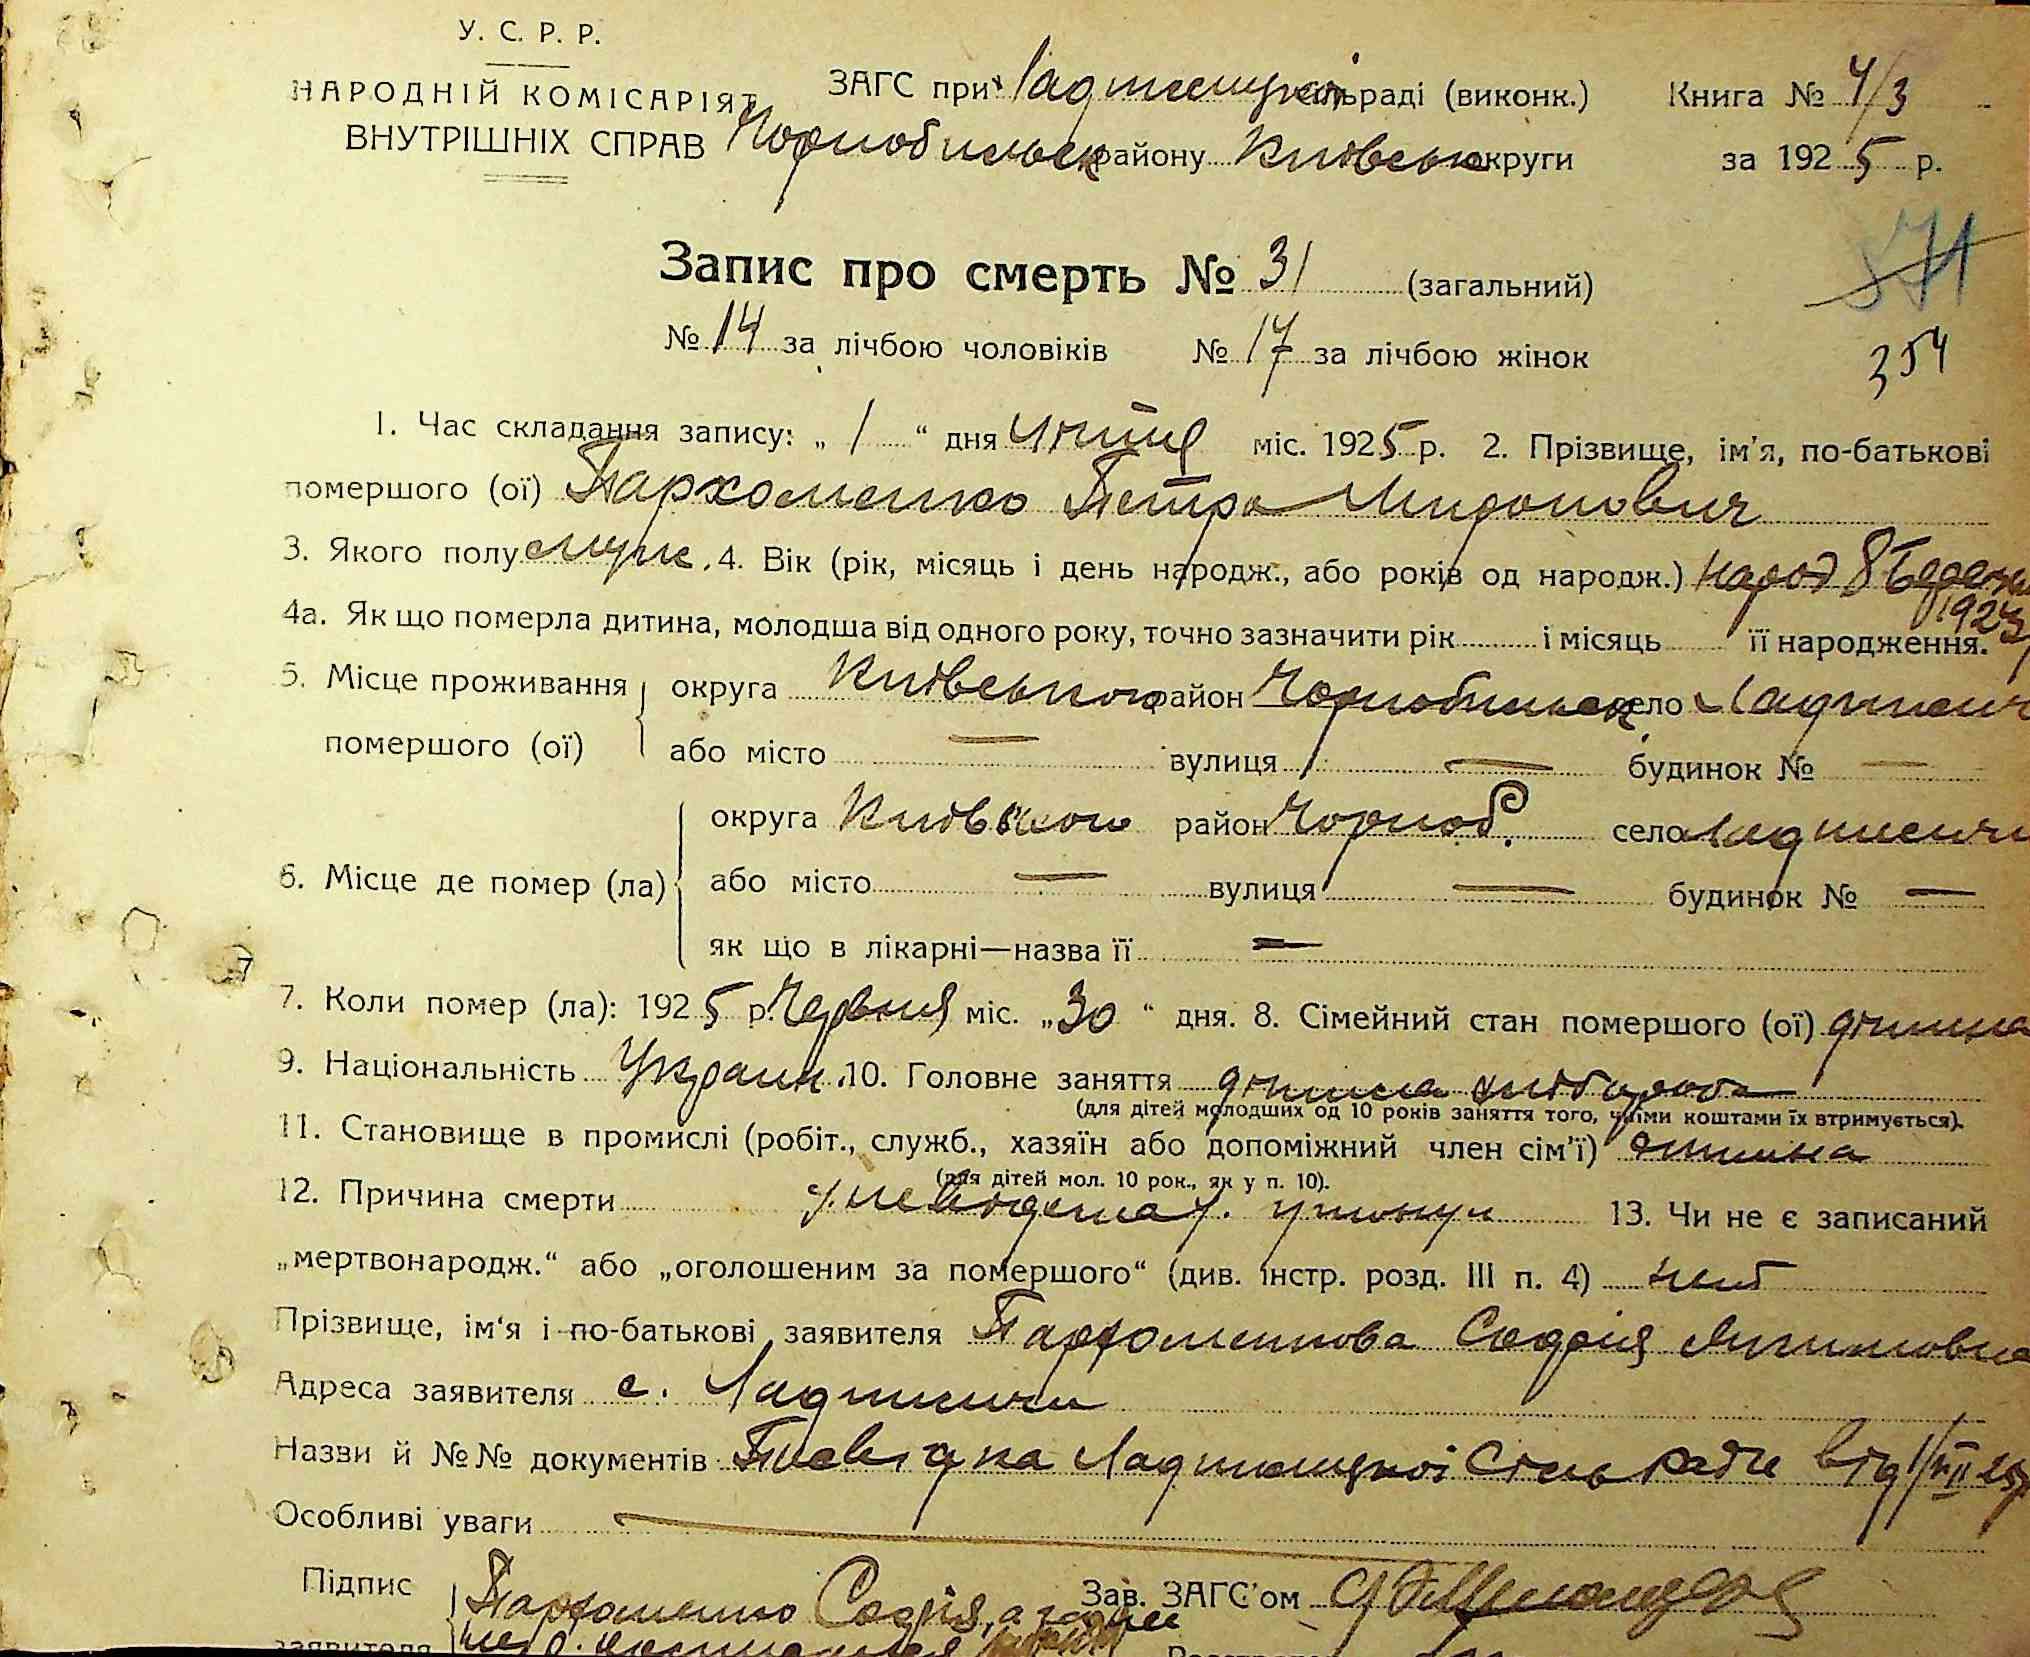 У. С. Р. Р.
НАРОДНІЙ КОМІСАРІЯТ
ВНУТРІШНІХ СПРАВ
ЗАГС при Ладижицкій сільраді (виконк.)
Чорнобильськ району Київськ округи
Книга № 4/3
за 1925 р.
Запис про смерть № 31 (загальний)
571
№ 14 за лічбою чоловіків № 17 за лічбою жінок
354
1. Час складання запису: „ 1 “ дня міс. 1925 р. 2. Прізвище, ім'я, по-батькові
помершого (ої) Пархоменко Петро Миронович
3. Якого полу муж. 4. Вік (рік, місяць і день народж., або років од народж.) народ 8 Березня
1923
4а. Як що померла дитина, молодша від одного року, точно зазначити рік і місяць її народження.
5. Місце проживання помершого (ої) округа Київського район Чорнобильськ село Ладижичі
або місто — вулиця — будинок № —
6. Місце де помер (ла) округа Київського район Чорноб. село Ладижичи
або місто — вулиця — будинок № —
як що в лікарні—назва її —
7. Коли помер (ла): 1925 р. Червня міс. „30“ дня. 8. Сімейний стан помершого (ої) дитина
9. Національність Украин. 10. Головне заняття дитина хлібороба
(для дітей молодших од 10 років заняття того, чиїми коштами їх втримується).
11. Становище в промислі (робіт., служб., хазяїн або допоміжний член сім'ї) дитина
(для дітей мол. 10 рок., як у п. 10).
12. Причина смерти утонул 13. Чи не є записаний
„мертвонародж.“ або „оголошеним за помершого“ (див. інстр. розд. III п. 4) ниі
Прізвище, ім'я і по-батькові заявителя Пархоменкова Софія
Адреса заявителя с. Ладижичи
Назви й №№ документів Посвідка Ладижицкої Сільради від 1/VII 25р
Особливі уваги
Підпис заявителя Пархоменко Софія, а за
Зав. ЗАГС'ом